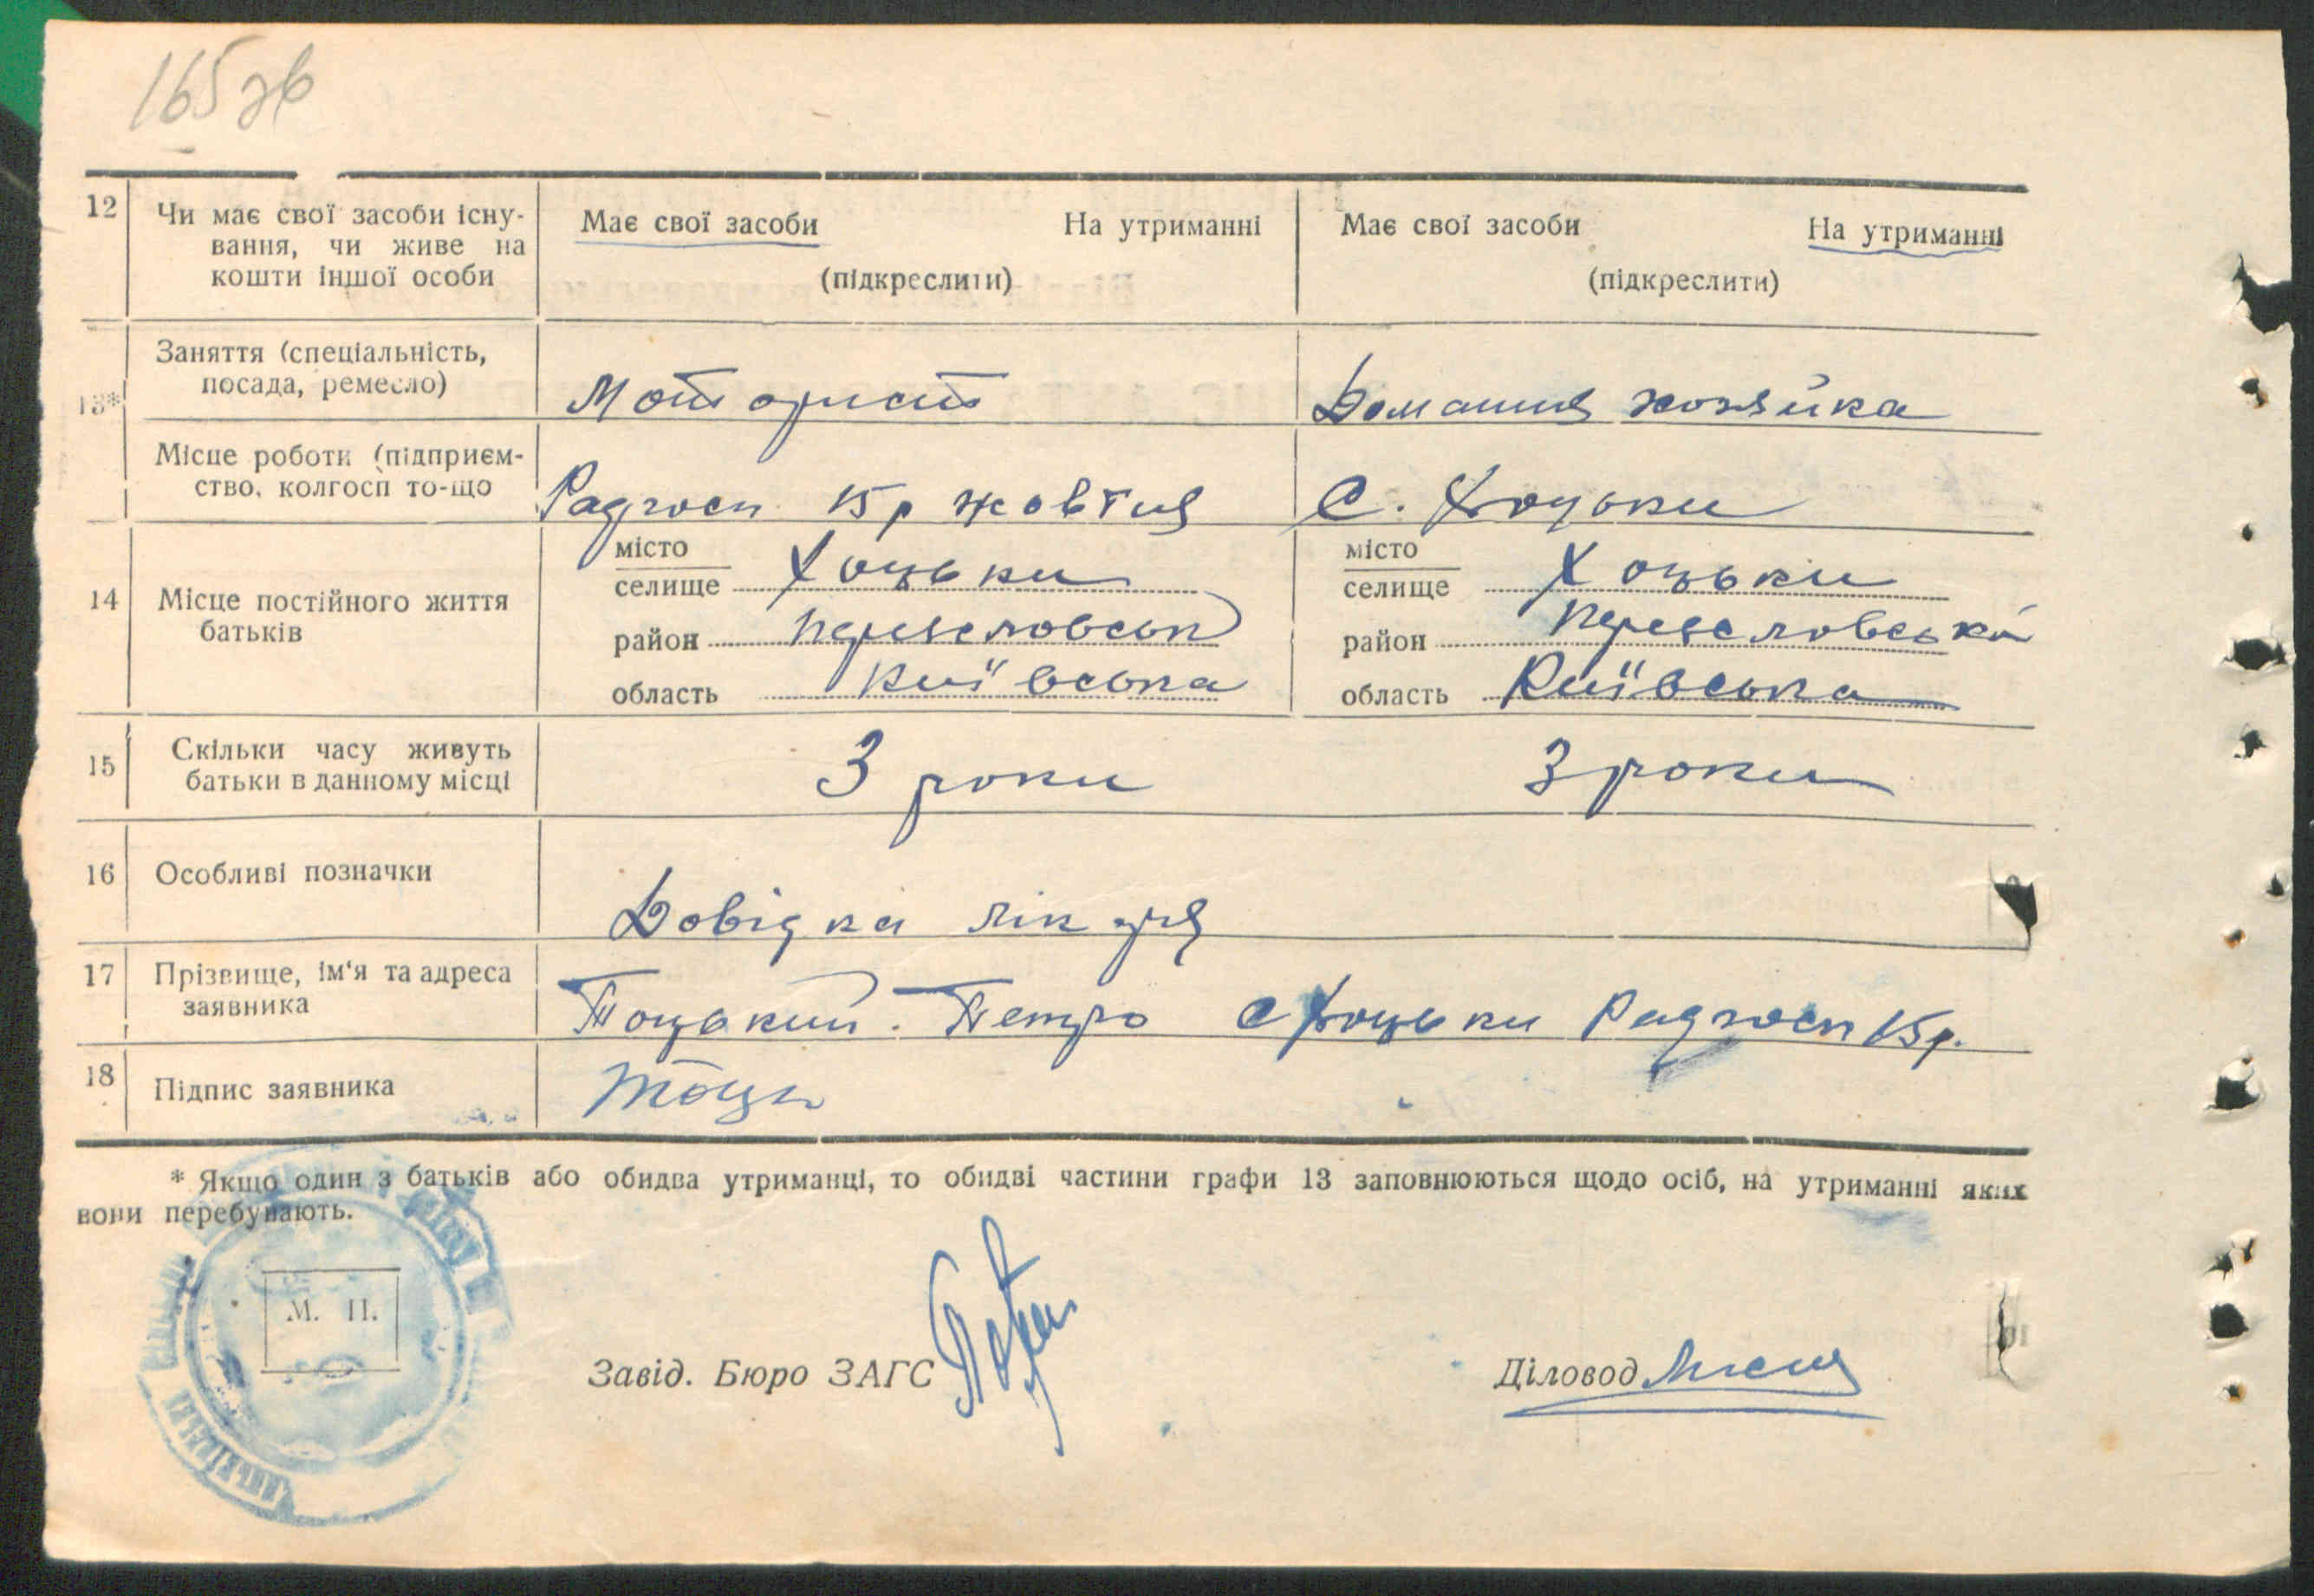 165зв
12 Чи має свої засоби існу-
вання, чи живе на
кошти іншої особи
Має свої засоби На утриманні
(підкреслити)
Має свої засоби На утриманні
(підкреслити)
13*
Заняття (спеціальність,
посада, ремесло)
Моторист
Домашня хозяйка
Місце роботи (підприєм-
ство, колгосп то-що
Радгосп 15 р жовтня
С. Хоцьки
14 Місце постійного життя
батьків
місто
селище Хоцьки
район Переясловськ
область Київська
місто
селище Хоцьки
район Переясловська
область Київська
15 Скільки часу живуть
батьки в данному місці
3 роки
3 роки
16 Особливі позначки
Довідка лікаря
17 Прізвище, ім'я та адреса
заявника
Тоцький Петро с Хоцьки Радгосп 15 р.
18 Підпис заявника
Тоць
* Якщо один з батьків або обидва утриманці, то обидві частини графи 13 заповнюються щодо осіб, на утриманні яких
вони перебувають.
М. П.
Завід. Бюро ЗАГС
Діловод